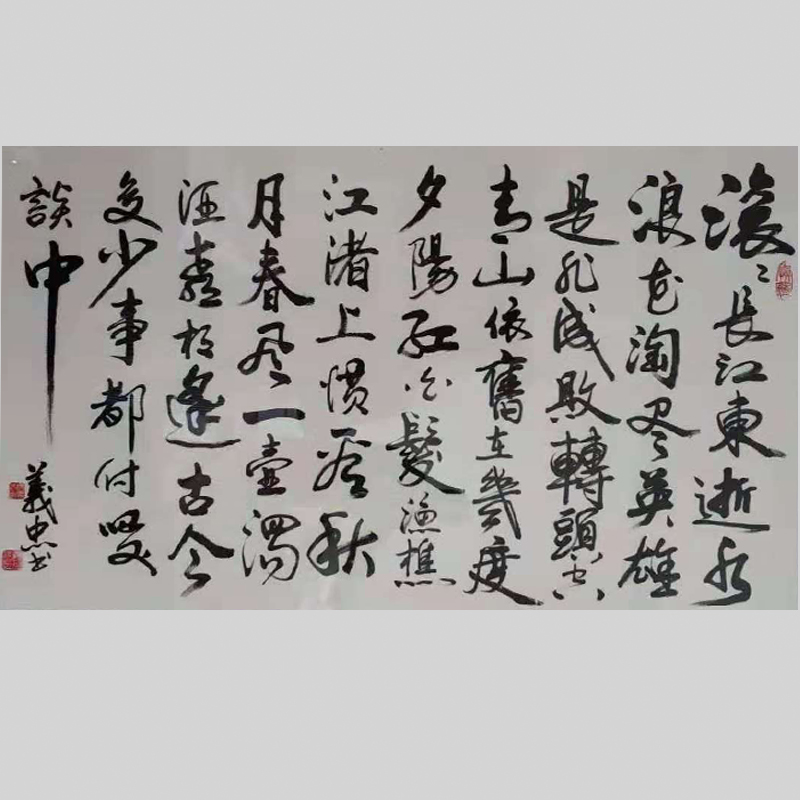 滚〻長江東逝水
浪花淘尽英雄
是非成敗轉頭空
青山依舊在幾度
夕陽红白髮漁樵
江渚上惯看秋
月春风一壺濁
酒喜相逢古今
多少事都付咲
談中
義忠书